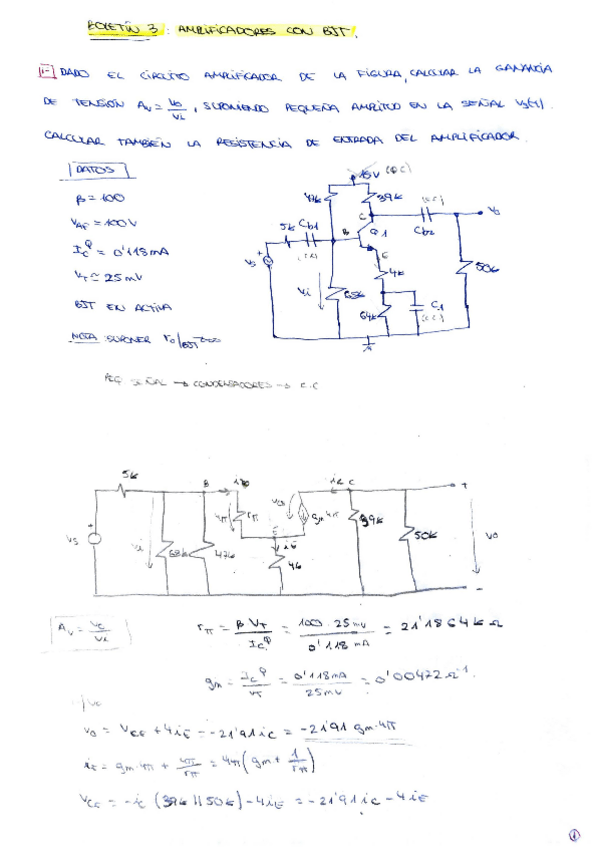 BOLETÍN 3: AMPLIFICADORES CON BJT.
1- DADO EL CIRCUITO AMPLIFICADOR DE LA FIGURA, CALCULAR LA GANANCIA
DE TENSIÓN Av = vo/vi, SUPONIENDO PEQUEÑA AMPLITUD EN LA SEÑAL Vs(t).
CALCULAR TAMBIÉN LA RESISTENCIA DE ENTRADA DEL AMPLIFICADOR.
DATOS
β = 100
VAF = 100V
IC^Q = 0'118mA
VT ≃ 25mV
BJT EN ACTIVA
NOTA SUPONER ro/BJT = ∞
15V (OC)
47k
39k
(CC)
Vo
C
5k
Cb1
B
Q1
Cb2
E
Vs
4k
50k
Vi
68k
64k
C1
(CC)
PEQ SEÑAL → CONDENSADORES → C.C
5k
B
ib
ic
C
+
vπ
rπ
gm vπ
39k
50k
vo
vs
68k
47k
E
iE
4k
-
Av = vo/vi
rπ = β VT / IC^Q = 100 · 25mV / 0'118 mA = 21'1864 k Ω
gm = IC^Q / VT = 0'118mA / 25mV = 0'00472 Ω^-1.
vo = VCE + 4iE = -21'91 iC = -21'91 gm·vπ
iE = gm·vπ + vπ/rπ = vπ (gm + 1/rπ)
VCE = -iC (39k || 50k) - 4iE = -21'91 iC - 4iE
1